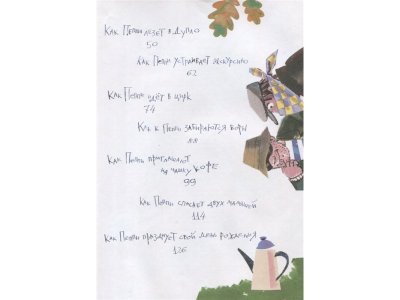 Как Пеппи лезет в дупло
50
Как Пеппи устраивает экскурсию
62
Как Пеппи идёт в цирк
74
Как к Пеппи забираются воры
88
Как Пеппи приглашают
на чашку кофе
99
Как Пеппи спасает двух малышей
114
Как Пеппи празднует свой день рождения
126